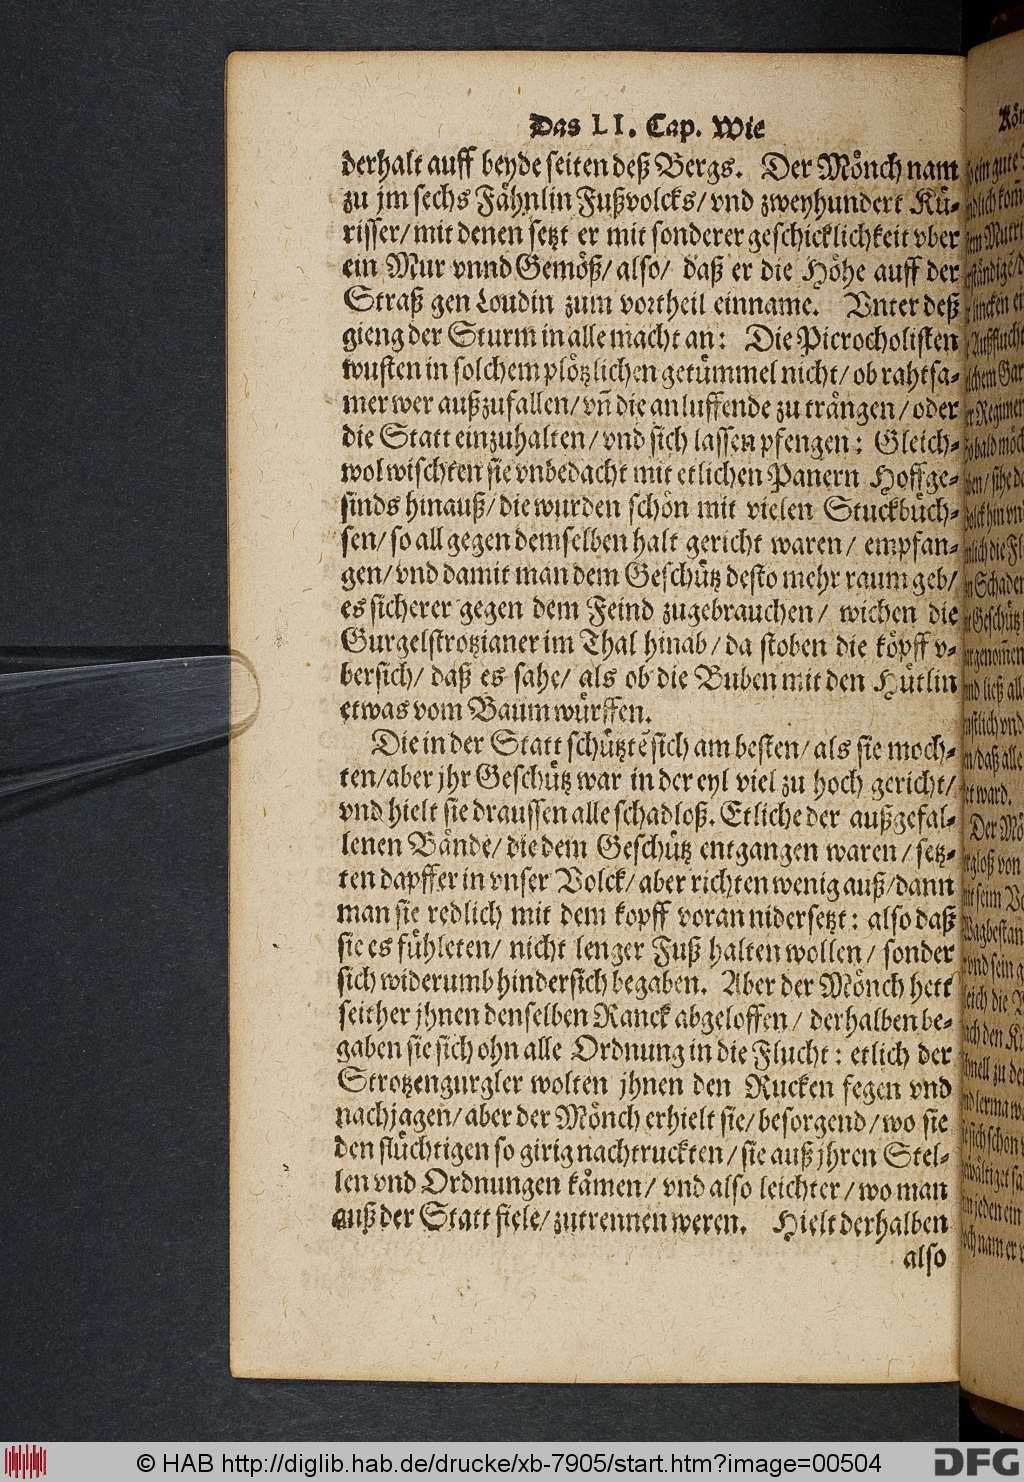 Das LI. Cap. Wie
derhalt auff beyde seiten deß Bergs. Der Mönch nam
zu jm sechs Fähnlin Fußvolcks/ vnd zweyhundert Kü-
risser/ mit denen setzt er mit sonderer geschicklichkeit vber
ein Mur vnnd Gemöß/ also/ daß er die Höhe auff der
Straß gen Loudin zum vortheil einname. Vnter deß
gieng der Sturm in alle macht an: Die Picrocholisten
wusten in solchem plötzlichen getümmel nicht/ ob rahtsa-
mer wer außzufallen/ vñ die anluffende zu trängen/ oder
die Statt einzuhalten/ vnd sich lassen pfengen: Gleich-
wol wischten sie vnbedacht mit etlichen Panern Hoffge-
sinds hinauß/ die wurden schön mit vielen Stuckbüch-
sen/ so all gegen demselben halt gericht waren/ empfan-
gen/ vnd damit man dem Geschütz desto mehr raum geb/
es sicherer gegen dem Feind zugebrauchen/ wichen die
Gurgelstrotzianer im Thal hinab/ da stoben die köpff v-
bersich/ daß es sahe/ als ob die Buben mit den Hütlin
etwas vom Baum würffen.
Die in der Statt schütztẽ sich am besten/ als sie moch-
ten/ aber jhr Geschütz war in der eyl viel zu hoch gericht/
vnd hielt sie draussen alle schadloß. Etliche der außgefal-
lenen Bände/ die dem Geschütz entgangen waren/ setz-
ten dapffer in vnser Volck/ aber richten wenig auß/ dann
man sie redlich mit dem kopff voran nidersetzt: also daß
sie es fühleten/ nicht lenger Fuß halten wollen/ sonder
sich widerumb hindersich begaben. Aber der Mönch hett
seither jhnen denselben Ranck abgeloffen/ derhalben be-
gaben sie sich ohn alle Ordnung in die Flucht: etlich der
Strotzengurgler wolten jhnen den Rucken fegen vnd
nachjagen/ aber der Mönch erhielt sie/ besorgend/ wo sie
den flüchtigen so girig nachtruckten/ sie auß jhren Stel-
len vnd Ordnungen kämen/ vnd also leichter/ wo man
auß der Statt fiele/ zutrennen weren. Hielt derhalben
also
© HAB http://diglib.hab.de/drucke/xb-7905/start.htm?image=00504
DFG